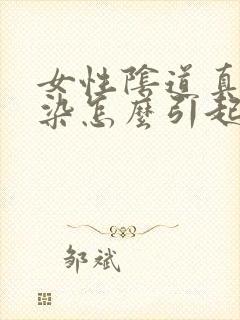 女性陰道真
染怎麼引起
邹斌